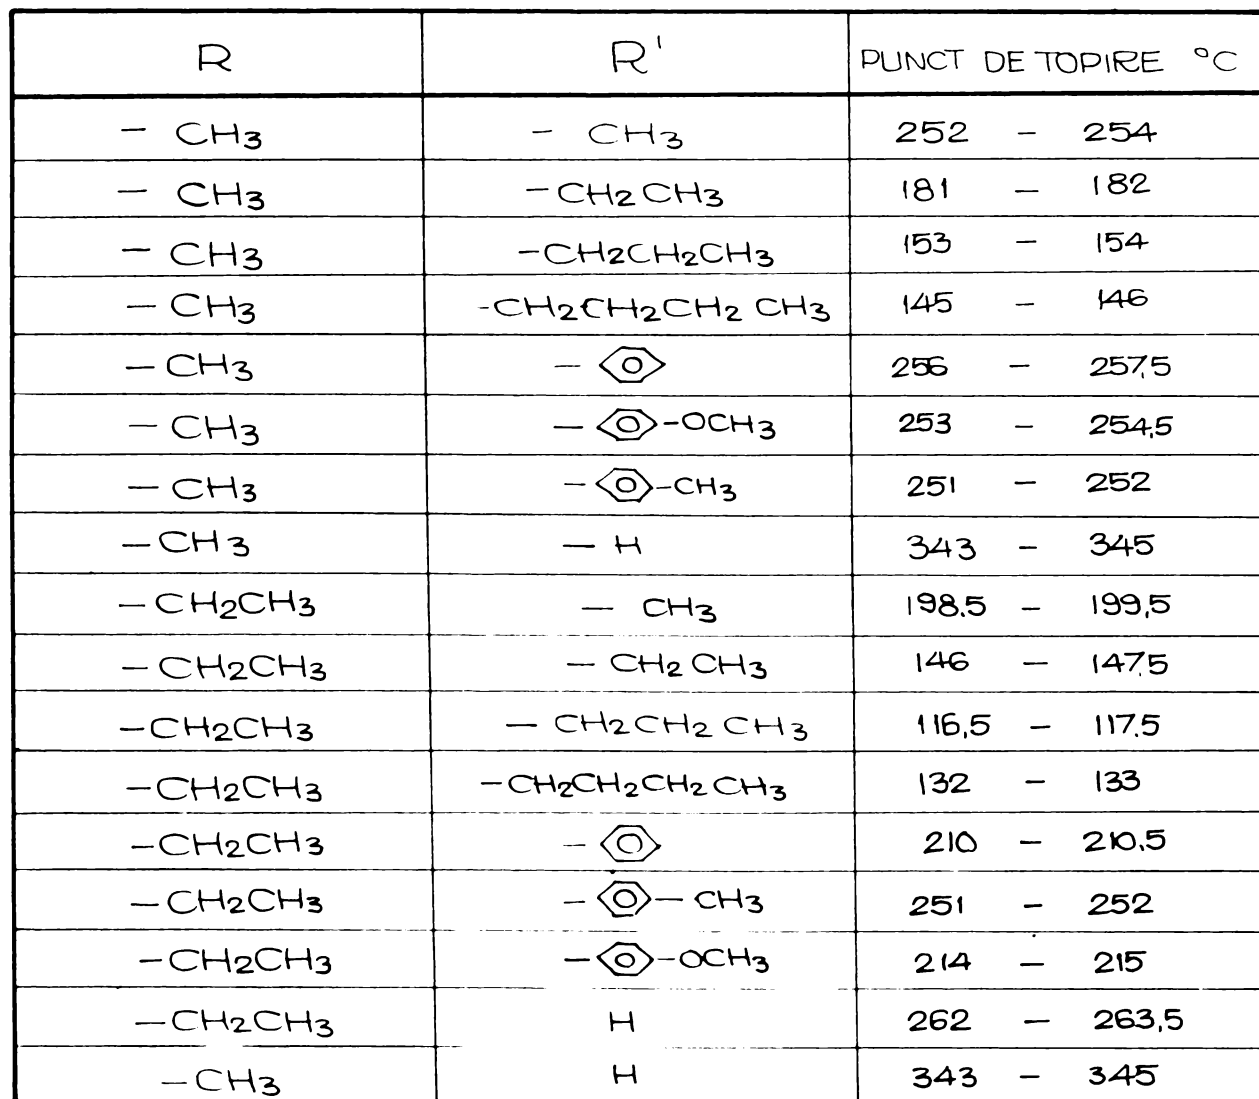 R R' PUNCT DE TOPIRE °C
- CH3 - CH3 252 - 254
- CH3 -CH2CH3 181 - 182
- CH3 -CH2CH2CH3 153 - 154
- CH3 -CH2CH2CH2CH3 145 - 146
- CH3 - 256 - 257,5
- CH3 - -OCH3 253 - 254,5
- CH3 - -CH3 251 - 252
-CH3 - H 343 - 345
-CH2CH3 - CH3 198.5 - 199,5
-CH2CH3 - CH2CH3 146 - 147.5
-CH2CH3 - CH2CH2CH3 116,5 - 117.5
-CH2CH3 -CH2CH2CH2CH3 132 - 133
-CH2CH3 - 210 - 210.5
-CH2CH3 - - CH3 251 - 252
-CH2CH3 - -OCH3 214 - 215
-CH2CH3 H 262 - 263,5
-CH3 H 343 - 345